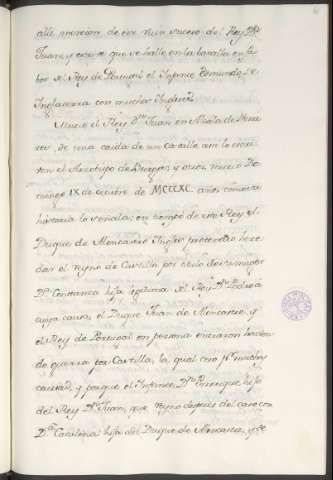 alli mencion de este mal suceso del Rey Dn
Juan, y escrive que se hallo en la batalla en fa
bor del Rey de Portugal el Infante Edmundo de
Inglaterra con muchos Ingleses.
Murio el Rey Dn Juan en Alcala de Hena
res de una caida de un cavallo, asi lo escri
ven el Arzobispo de Burgos, y otros, murio Do
mingo IX de octubre de MCCCXC. años como su
historia lo señala: en tiempo de este Rey el
Duque de Alencastre Ingles pretendio here
dar el reyno de Castilla por titulo de su muger
Da Constanza hija legitima del Rey Dn Pedro a
cuya causa el Duque Juan de Alencastre, y
el Rey de Portugal en persona entraron hacien
do guerra por Castilla, la qual ceso pr muchas
causas, y porque el Infante Dn Enrique hijo
del Rey Dn Juan, que reyno despues del caso con
Da Catalina hija del Duque de Alencastre, y de